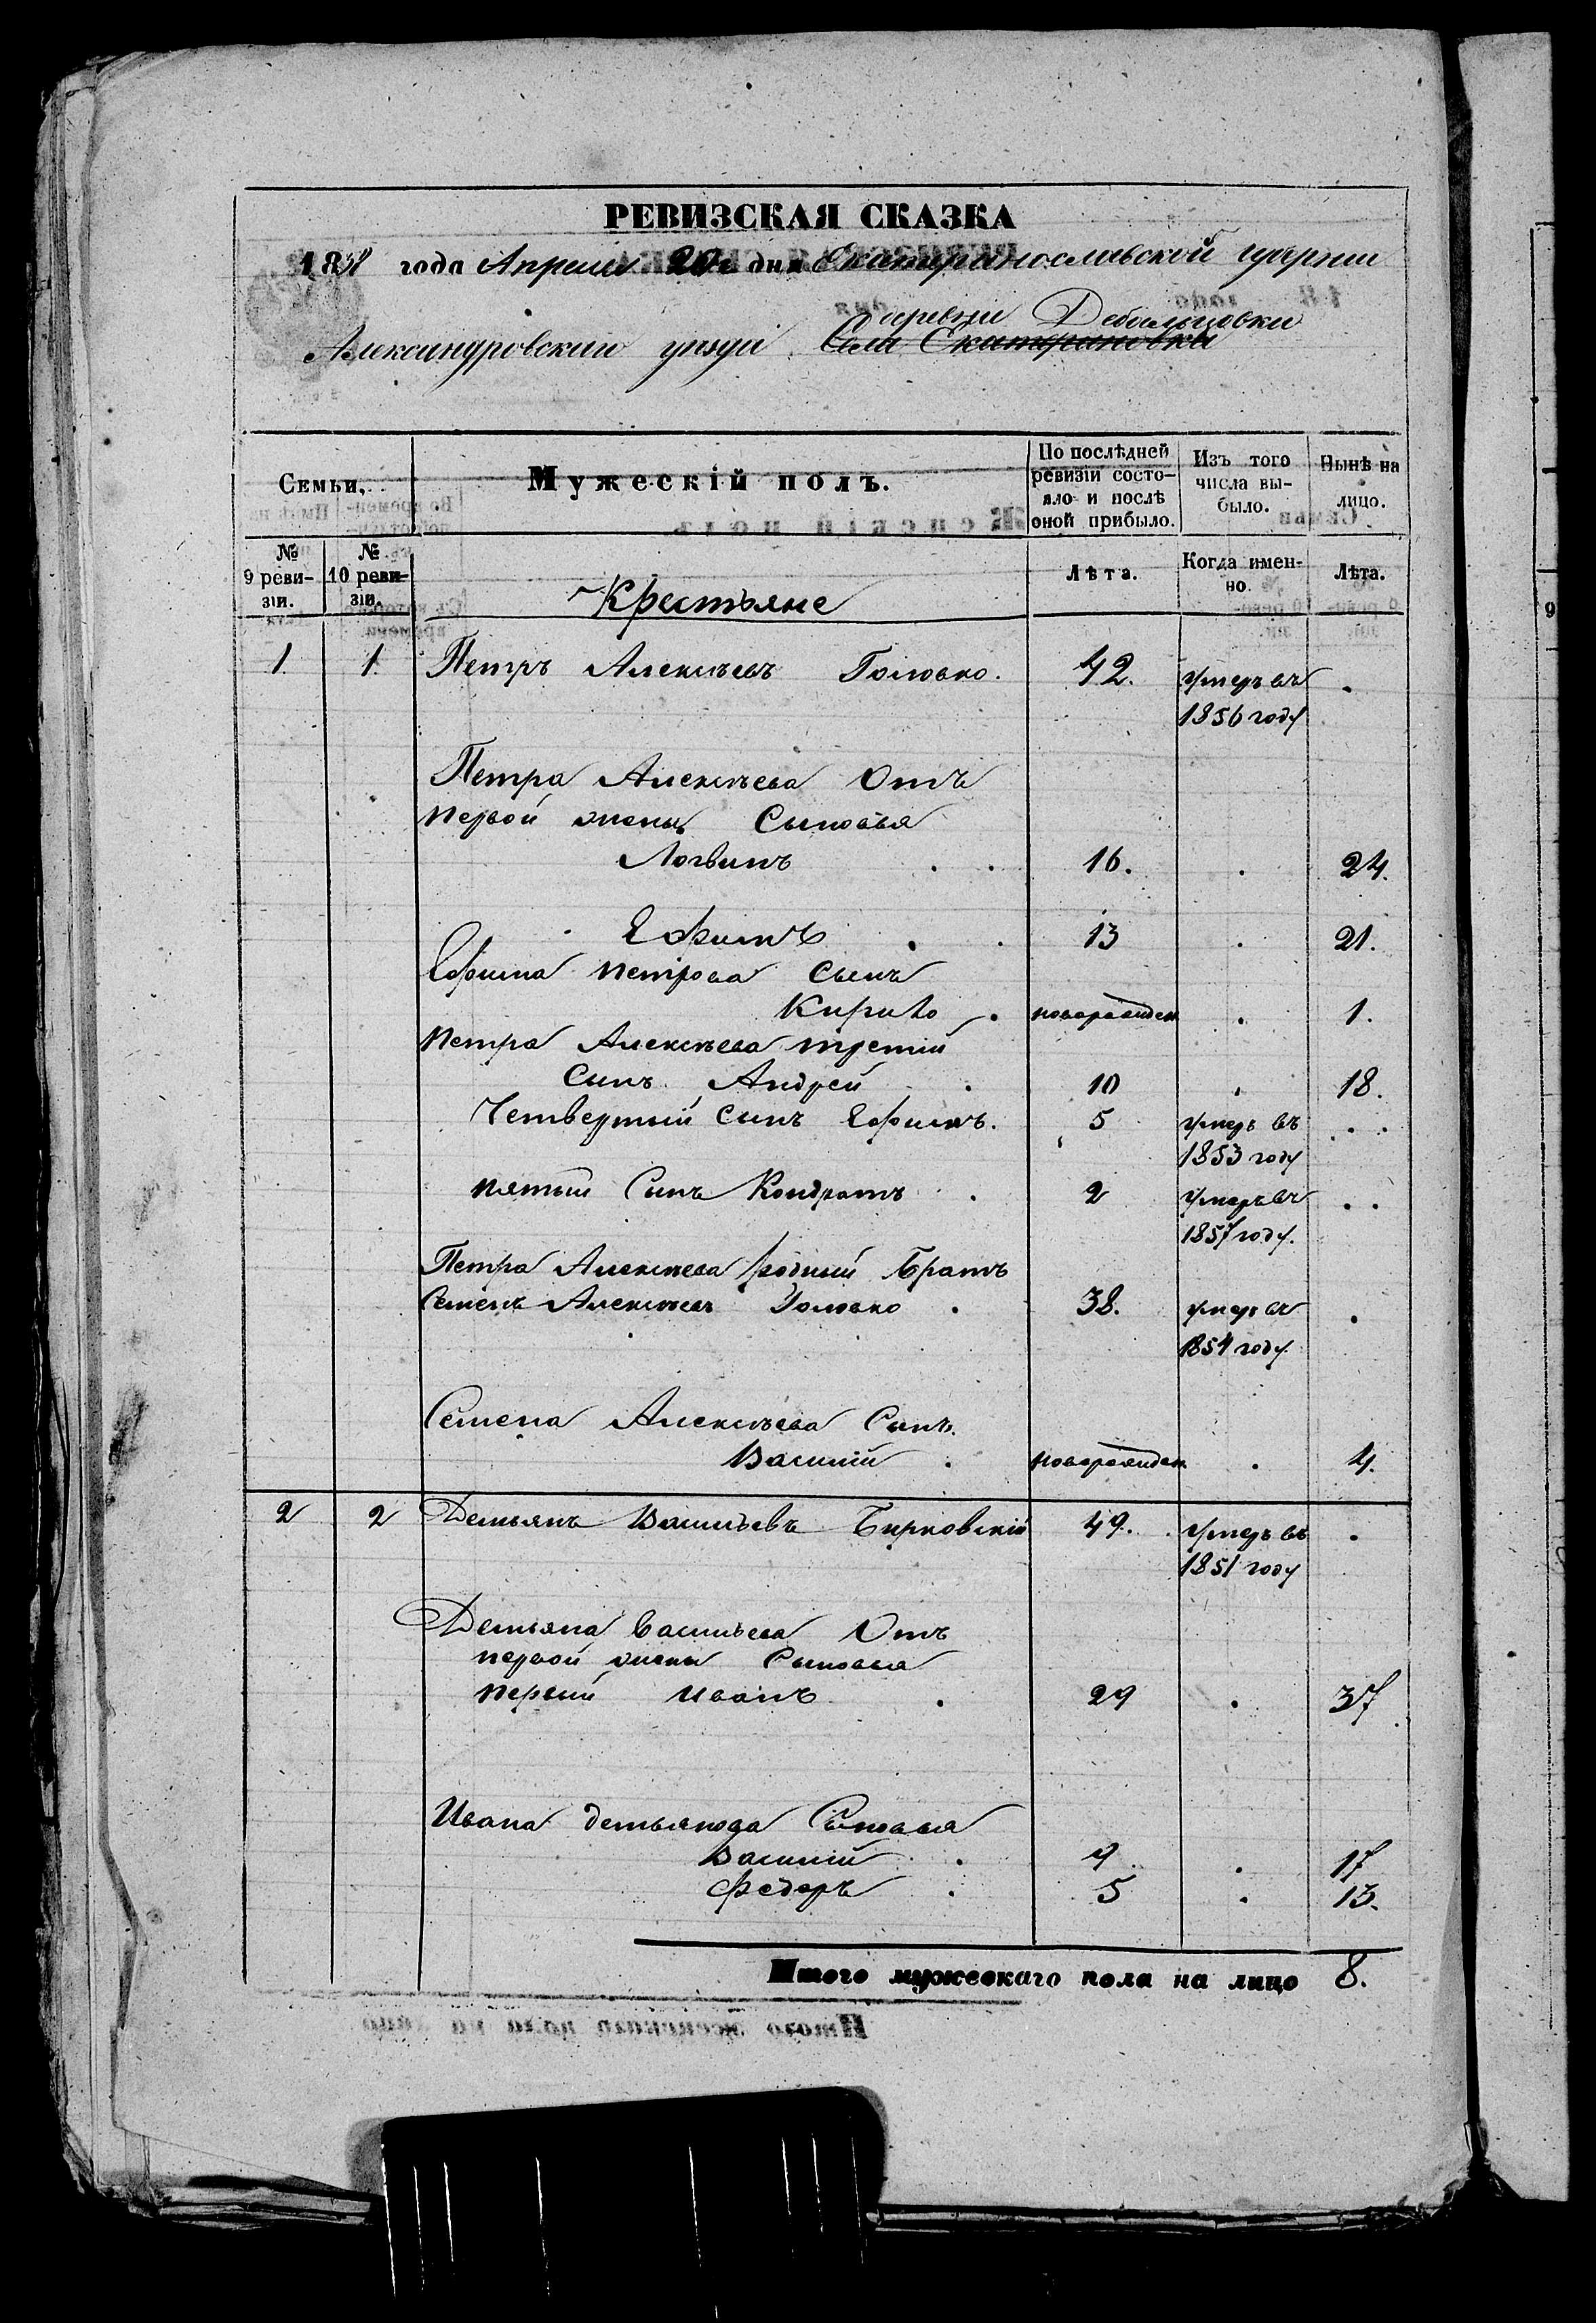 РЕВИЗСКАЯ СКАЗКА
1858 года Апреля 20 дня Екатеринославской губернии
деревни Дебальцовки
Александровский уѣзда Села Екатериновки
Семьи,
Мужескій полъ.
По послѣдней ревизіи состояло и послѣ оной прибыло.
Изъ того числа выбыло.
Нынѣ на лицо.
№ 9 ревизіи.
№ 10 ревизіи.
Крестьяне
Лѣта.
Когда именно.
Лѣта.
1. 1. Петръ Алексѣевъ Головко. 42. умеръ въ
1856 году
Петра Алексѣева Отъ
первой жены Сыновья
Логвинъ 16. 24.
Ефимъ 13 21.
Ефима Петрова сынъ
Кирило новорожден 1.
Петра Алексѣева третій
сынъ Андрей 10 18.
Четвертый сынъ Ефимъ. 5 умеръ въ
1853 году
пятый Сынъ Кондратъ 2 умеръ въ
1857 году.
Петра Алексѣева родный Братъ
Семенъ Алексѣевъ Головко 38. умеръ въ
1854 году.
Семена Алексѣева Сынъ
Василій новорожден. 4.
2 2 Демьянъ Васильевъ Бирковскій 49. умеръ въ
1851 году
Демьяна Васильева Отъ
первой жены Сыновья
первый Иванъ 29 37
Ивана Демьянова Сыновья
Василій 9 17
Федоръ 5 13.
Итого мужескаго пола на лицо 8.